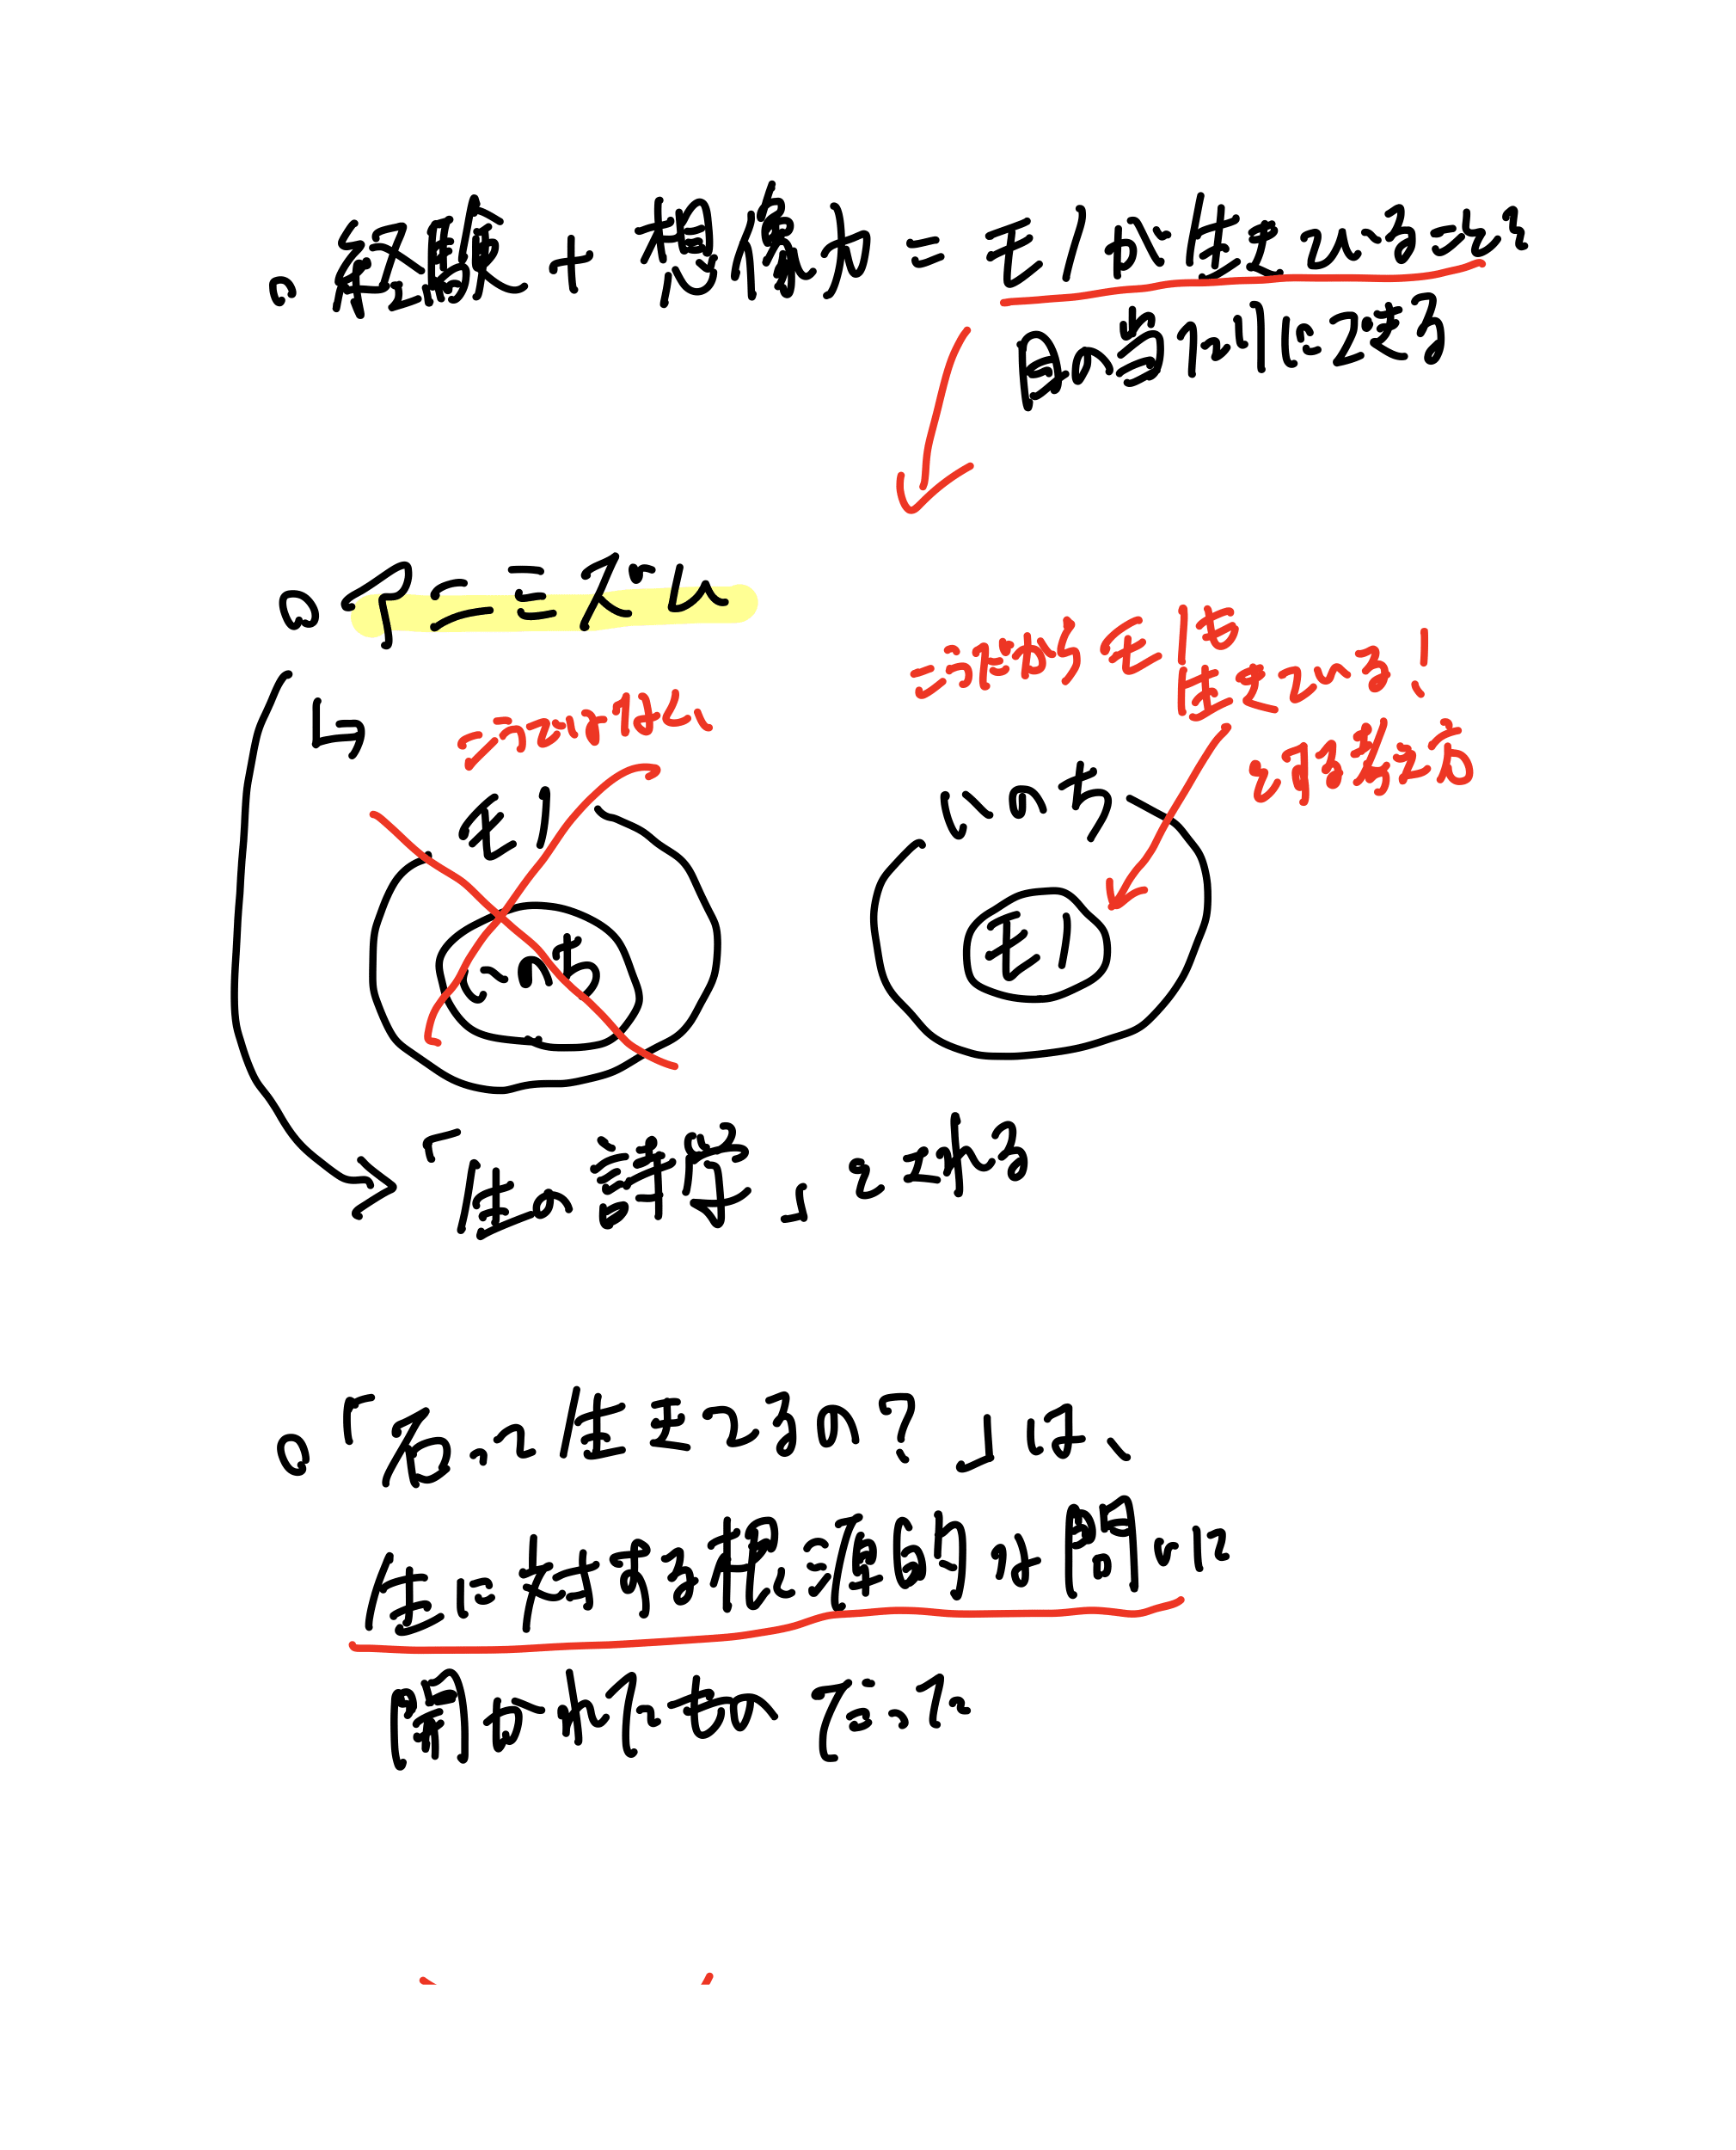 。経験 + 想像力 = モノが生きていることを
目の当たりにできる
。アニミズム
↳
こうではない
モノ
いのち
この惑的なモノは
生きている!
という考え方
いのち
モノ
→「生の詩学」と対する
。「石って生きてるの?」は、
生に対する根源的な問いに
開かれたもの だった